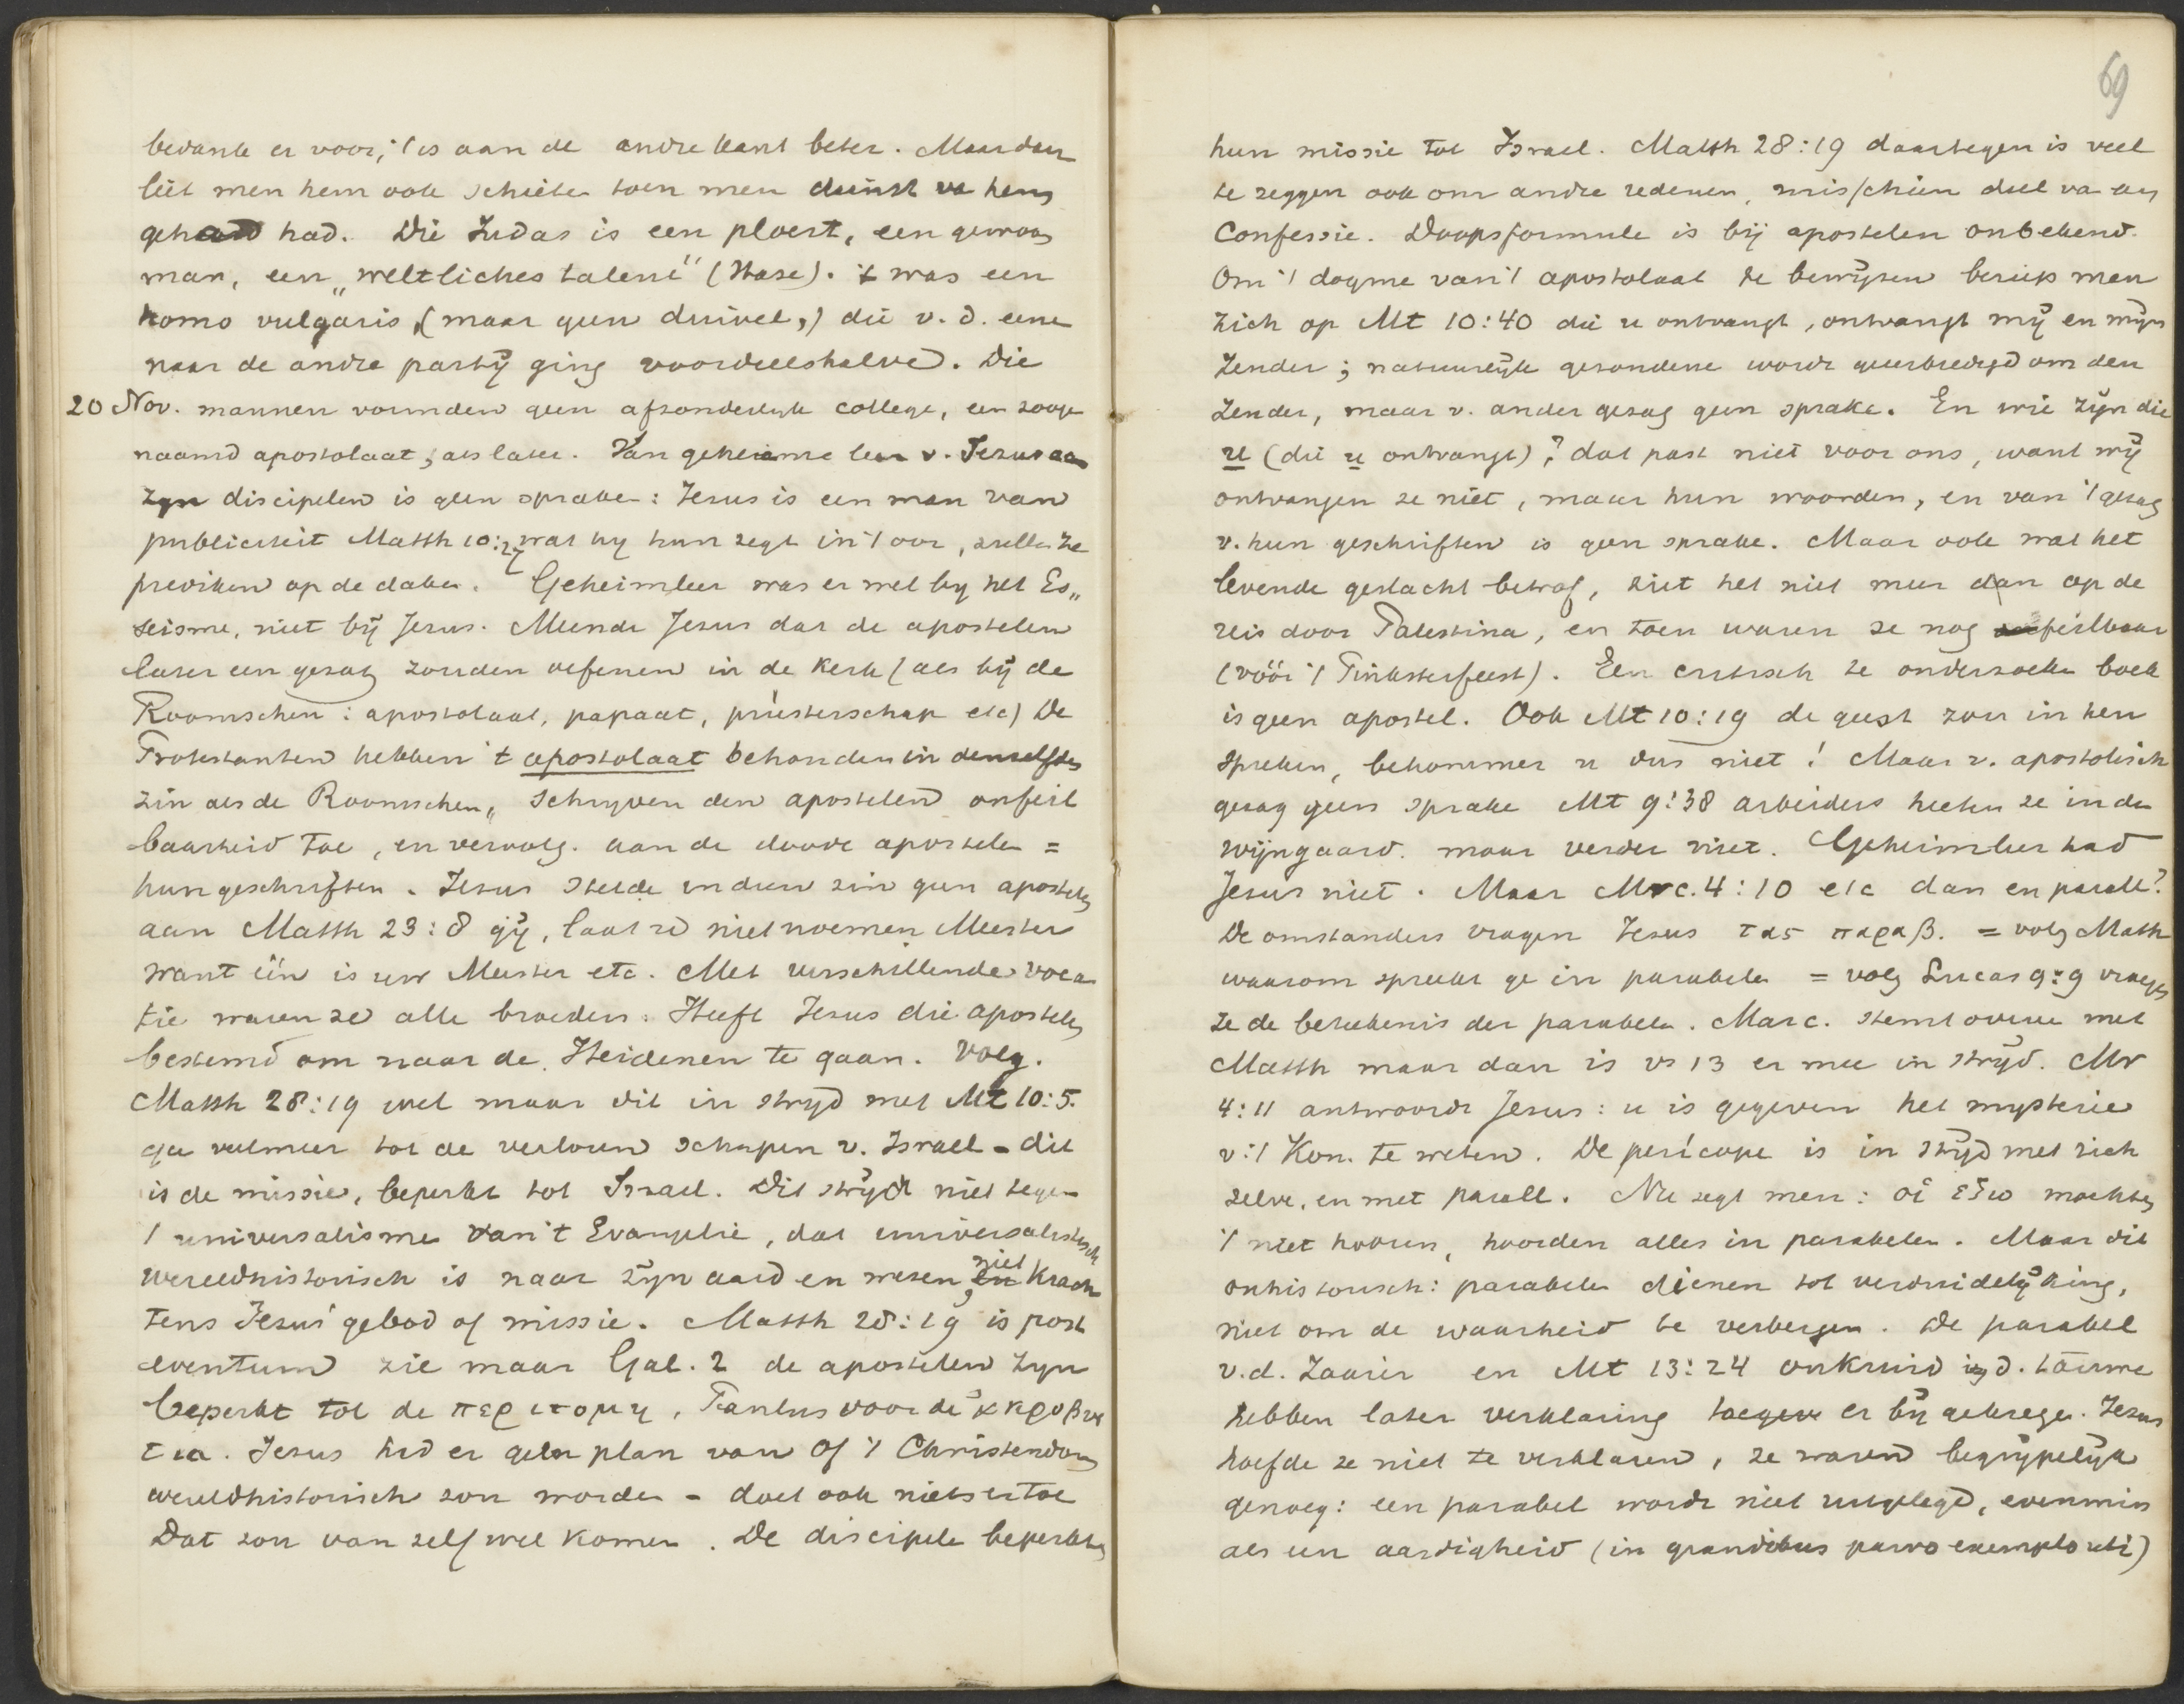 bedankte er voor, 't is aan de andre kant beter. Maar dan
liet men hem ook schieten toen men dienst va hem
gehad had. Die Judas is een ploert, een gewoon
man, een „weltliches talent" (Hase). 't was een
homo vulgaris, (maar geen duivel,) die v. d. eene
naar de andre partÿ ging voordeelshalve. Die
20 Nov. mannen vormden geen afzonderlyk college, een zooge
naamd apostolaat, als later. Van geheime leer v. Jezus aan
zyn discipelen is geen sprake: Jesus is een man van
publiciteit Matth 10:27 wat hy hun zegt in 't oor, zullen ze
prediken op de daken. Geheimleer was er wel by het Es„
seisme, niet bÿ Jesus. Meende Jesus dat de apostelen
later een gezag zouden oefenen in de kerk (als bÿ de
Roomschen: apostolaat, papaat, priesterschap etc) De
Protestanten hebben 't apostolaat behouden in denzelfden
zin als de Roomschen„ schryven den apostelen onfeil
baarheid toe, en vervolg. aan de doode apostelen =
hun geschriften. Jesus stelde in dien zin geen apostelen
aan Matth 23:8 gÿ, laat u niet noemen Meester
want één is uw Meester etc. Met verschillende voca
tie waren ze alle broeders. Heeft Jesus die apostelen
bestemd om naar de Heidenen te gaan. Volg.
Matth 28:19 wel maar dit in stryd met Mt 10:5.
ga veelmeer tot de verloren schapen v. Israel - dit
is de missie, beperkt tot Israel. Dit strÿdt niet tegen
't universalisme van 't Evangelie, dat universalistisch
wereldhistorisch is naar zÿn aard en wezen, niet krach
tens Jesus' gebod of missie. Matth 28:19 is post
eventum zie maar Gal. 2 de apostelen zyn
beperkt tot de περιτομη, Paulus voor de ἀκροβυσ
τια. Jesus had er geen plan van of 't Christendom
wereldhistorisch zou worden - doet ook niets er toe
Dat zou van zelf wel komen. De discipelen beperkten
69
hun missie tot Israel. Matth 28:19 daartegen is veel
te zeggen ook om andre redenen, misschien deel va een
Confessie. Doopsformule is bÿ apostelen onbekend.
Om 't dogme van 't apostolaat te bewÿzen beriep men
zich op Mt 10:40 die u ontvangt, ontvangt mÿ en mÿn
Zender; natuurlÿk gezondene wordt geeerbiedigd om den
Zender, maar v. ander gezag geen sprake. En wie zÿn die
u (die u ontvangt)? dat past niet voor ons, want wÿ
ontvangen ze niet, maar hun woorden, en van 't gezag
v. hun geschriften is geen sprake. Maar ook wat het
levende geslacht betrof, ziet het niet meer dan op de
reis door Palestina, en toen waren ze nog feilbaar
(vóór 't Pinksterfeest). Een critisch te onderzoeken boek
is geen apostel. Ook Mt 10:19 de geest zou in hen
spreken, bekommer u dus niet! Maar v. apostolisch
gezag geen sprake Mt 9:38 arbeiders heeten ze in den
wijngaard. maar verder niet. Geheimleer had
Jesus niet. Maar Mrc. 4:10 etc dan en parall?
De omstanders vragen Jesus τας παραβ. = volg Matth
waarom spreekt ge in parabelen = volg Lucas 9:9 vragen
ze de beteekenis der parabelen. Marc. stemt overeen met
Matth maar dan is vs 13 er mee in strÿd. Mr
4:11 antwoordt Jesus: u is gegeven het mysterie
v. 't Kon. te weten. De perícope is in strÿd met zich
zelve, en met parall. Nu zegt men: οἱ ἐξω mochten
't niet hooren, hoorden alles in parabelen. Maar dit
onhistorisch: parabelen dienen tot verduidelÿking,
niet om de waarheid te verbergen. De parabel
v.d. Zaaier en Mt 13:24 onkruid i/d. tarwe
hebben later verklaring er bÿ gekregen. Jezus
hoefde ze niet te verklaren, ze waren begrÿpelÿk
genoeg: een parabel wordt niet uitgelegd, evenmin
als een aardigheid (in grandibus parvo exemplo uti)